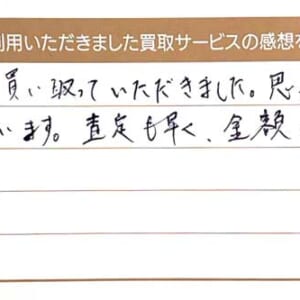 利用いただきました買取サービスの感想を
買い取っていただきました。思
います。査定も早く、金額